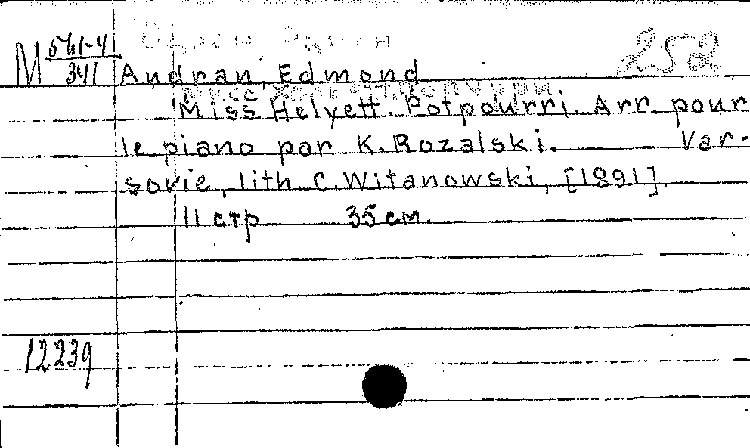 М 561-4/341
252
Andran, Edmond
Miss Helyett. Potpourri. Arr. pour
le piano par K. Rozalski. Var-
sovie, lith. C. Witanowski, [1891].
11 стр 35 см.
12239